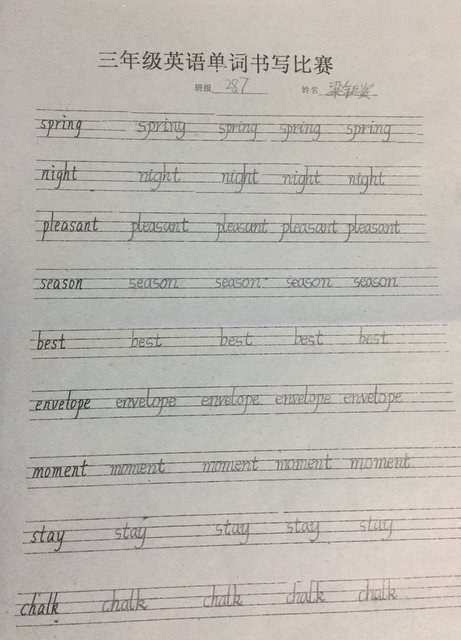 三年级英语单词书写比赛
班级 287 姓名
spring spring spring spring spring
night night night night night
pleasant pleasant pleasant pleasant pleasant
season season season season season
best best best best best
envelope envelope envelope envelope envelope
moment moment moment moment moment.
stay stay stay stay stay
chalk chalk chalk chalk chalk